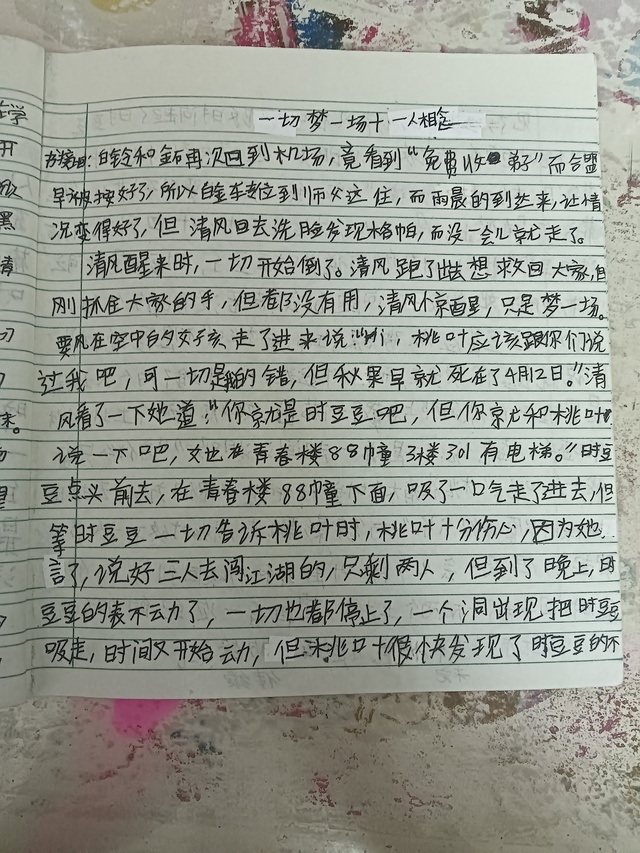 一切梦一场十一人相
书接回:白铃和金石再次回到机场,竟看到“免费收弟子”而合盟
早就按好了,所以白金车专位到师父这住,而雨晨的到来,让情
况变得好了,但清风回去洗脸发现格帕,而没一会儿就走了。
清风醒来时,一切开始倒了。清风跑了出去想救回大家,但
刚抓住大家的手,但都没有用,清风惊醒,只是梦一场。
耍风在空中的女子孩走了进来说:“你们,桃叶应该跟你们说
过我吧,可一切是我的错,但秋果早就死在了4月12日。”清
风看了一下她道:“你就是时豆豆吧,但你就和桃叶
说一下吧,她在青春楼88幢3楼301有电梯。”时豆
豆点头前去,在青春楼88幢下面,吸了一口气走了进去,但
等时豆豆一切告诉桃叶时,桃叶十分伤心,因为她
言了,说好三人去闯江湖的,只剩两人,但到了晚上,时
豆豆的表不动了,一切也都停止了,一个洞出现把时豆豆
吸走,时间又开始动,但桃叶很快发现了时豆豆的不